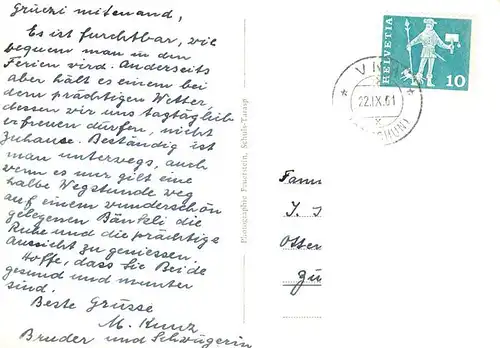 Grüezi mitenand,
Es ist furchtbar, wie
bequem man in den
Ferien wird. Anderseits
aber hält es einem bei
dem prächtigen Wetter,
dessen wir uns tagtäglich
erfreuen dürfen, nicht
zuhause. Beständig ist
man unterwegs, auch
wenn es nur gilt eine
halbe Wegstunde weg
auf einem wunderschön
gelegenen Bänkli die
Ruhe und die prächtige
Aussicht zu geniessen.
Hoffe, dass Sie Beide
gesund und munter
sind.
Beste Grüsse
M. Kunz
Bruder und Schwägerin
Photographie Feuerstein, Schuls-Tarasp
HELVETIA
10
22.IX.61
Fam
Otten